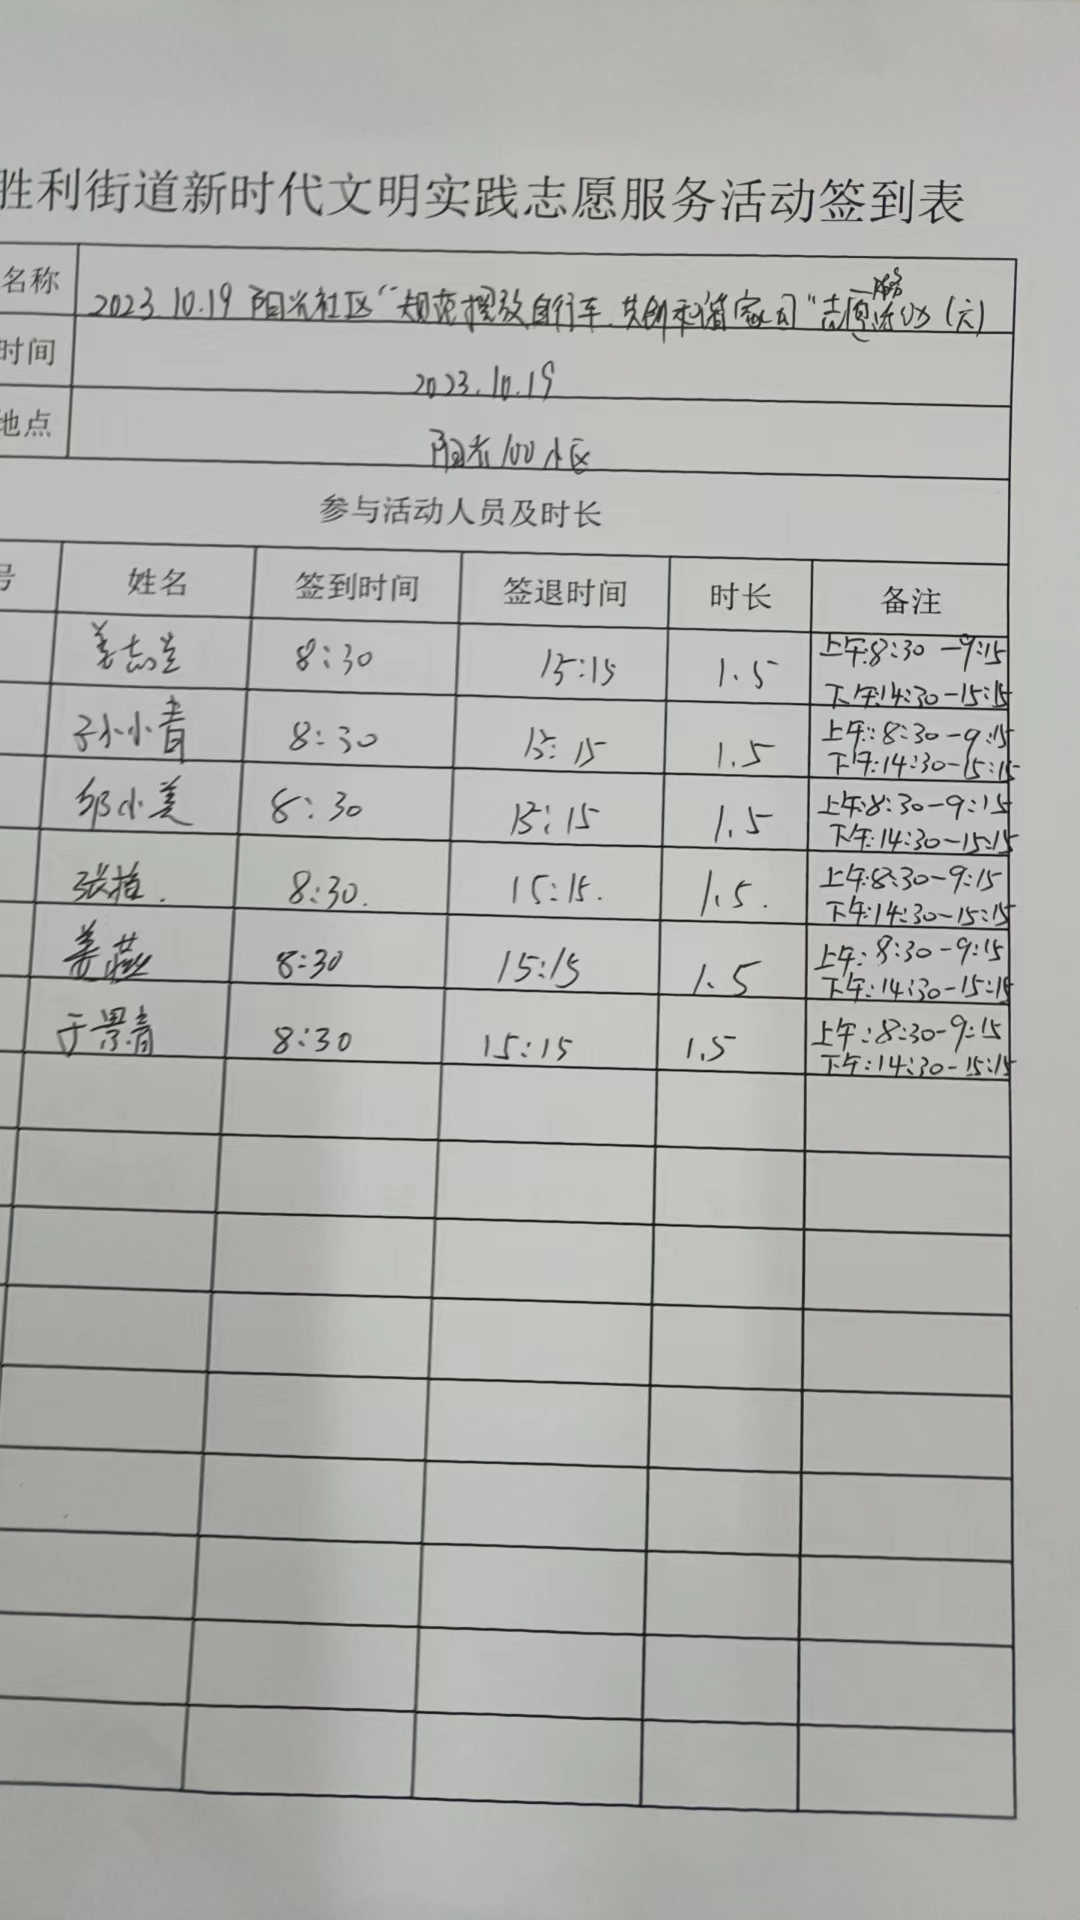 胜利街道新时代文明实践志愿服务活动签到表
名称 2023.10.19 阳光社区"规范摆放自行车、共创和谐家园"志愿服务活动(六)
时间 2023.10.19
地点 阳光100小区
参与活动人员及时长
号 姓名 签到时间 签退时间 时长 备注
姜志兰 8:30 15:15 1.5 上午:8:30-9:15
下午:14:30-15:15
孙小青 8:30 15:15 1.5 上午:8:30-9:15
下午:14:30-15:15
邹小美 8:30 15:15 1.5 上午:8:30-9:15
下午:14:30-15:15
张 8:30. 15:15. 1.5. 上午:8:30-9:15
下午:14:30-15:15
姜燕 8:30 15:15 1.5 上午:8:30-9:15
下午:14:30-15:15
于景青 8:30 15:15 1.5 上午:8:30-9:15
下午:14:30-15:15